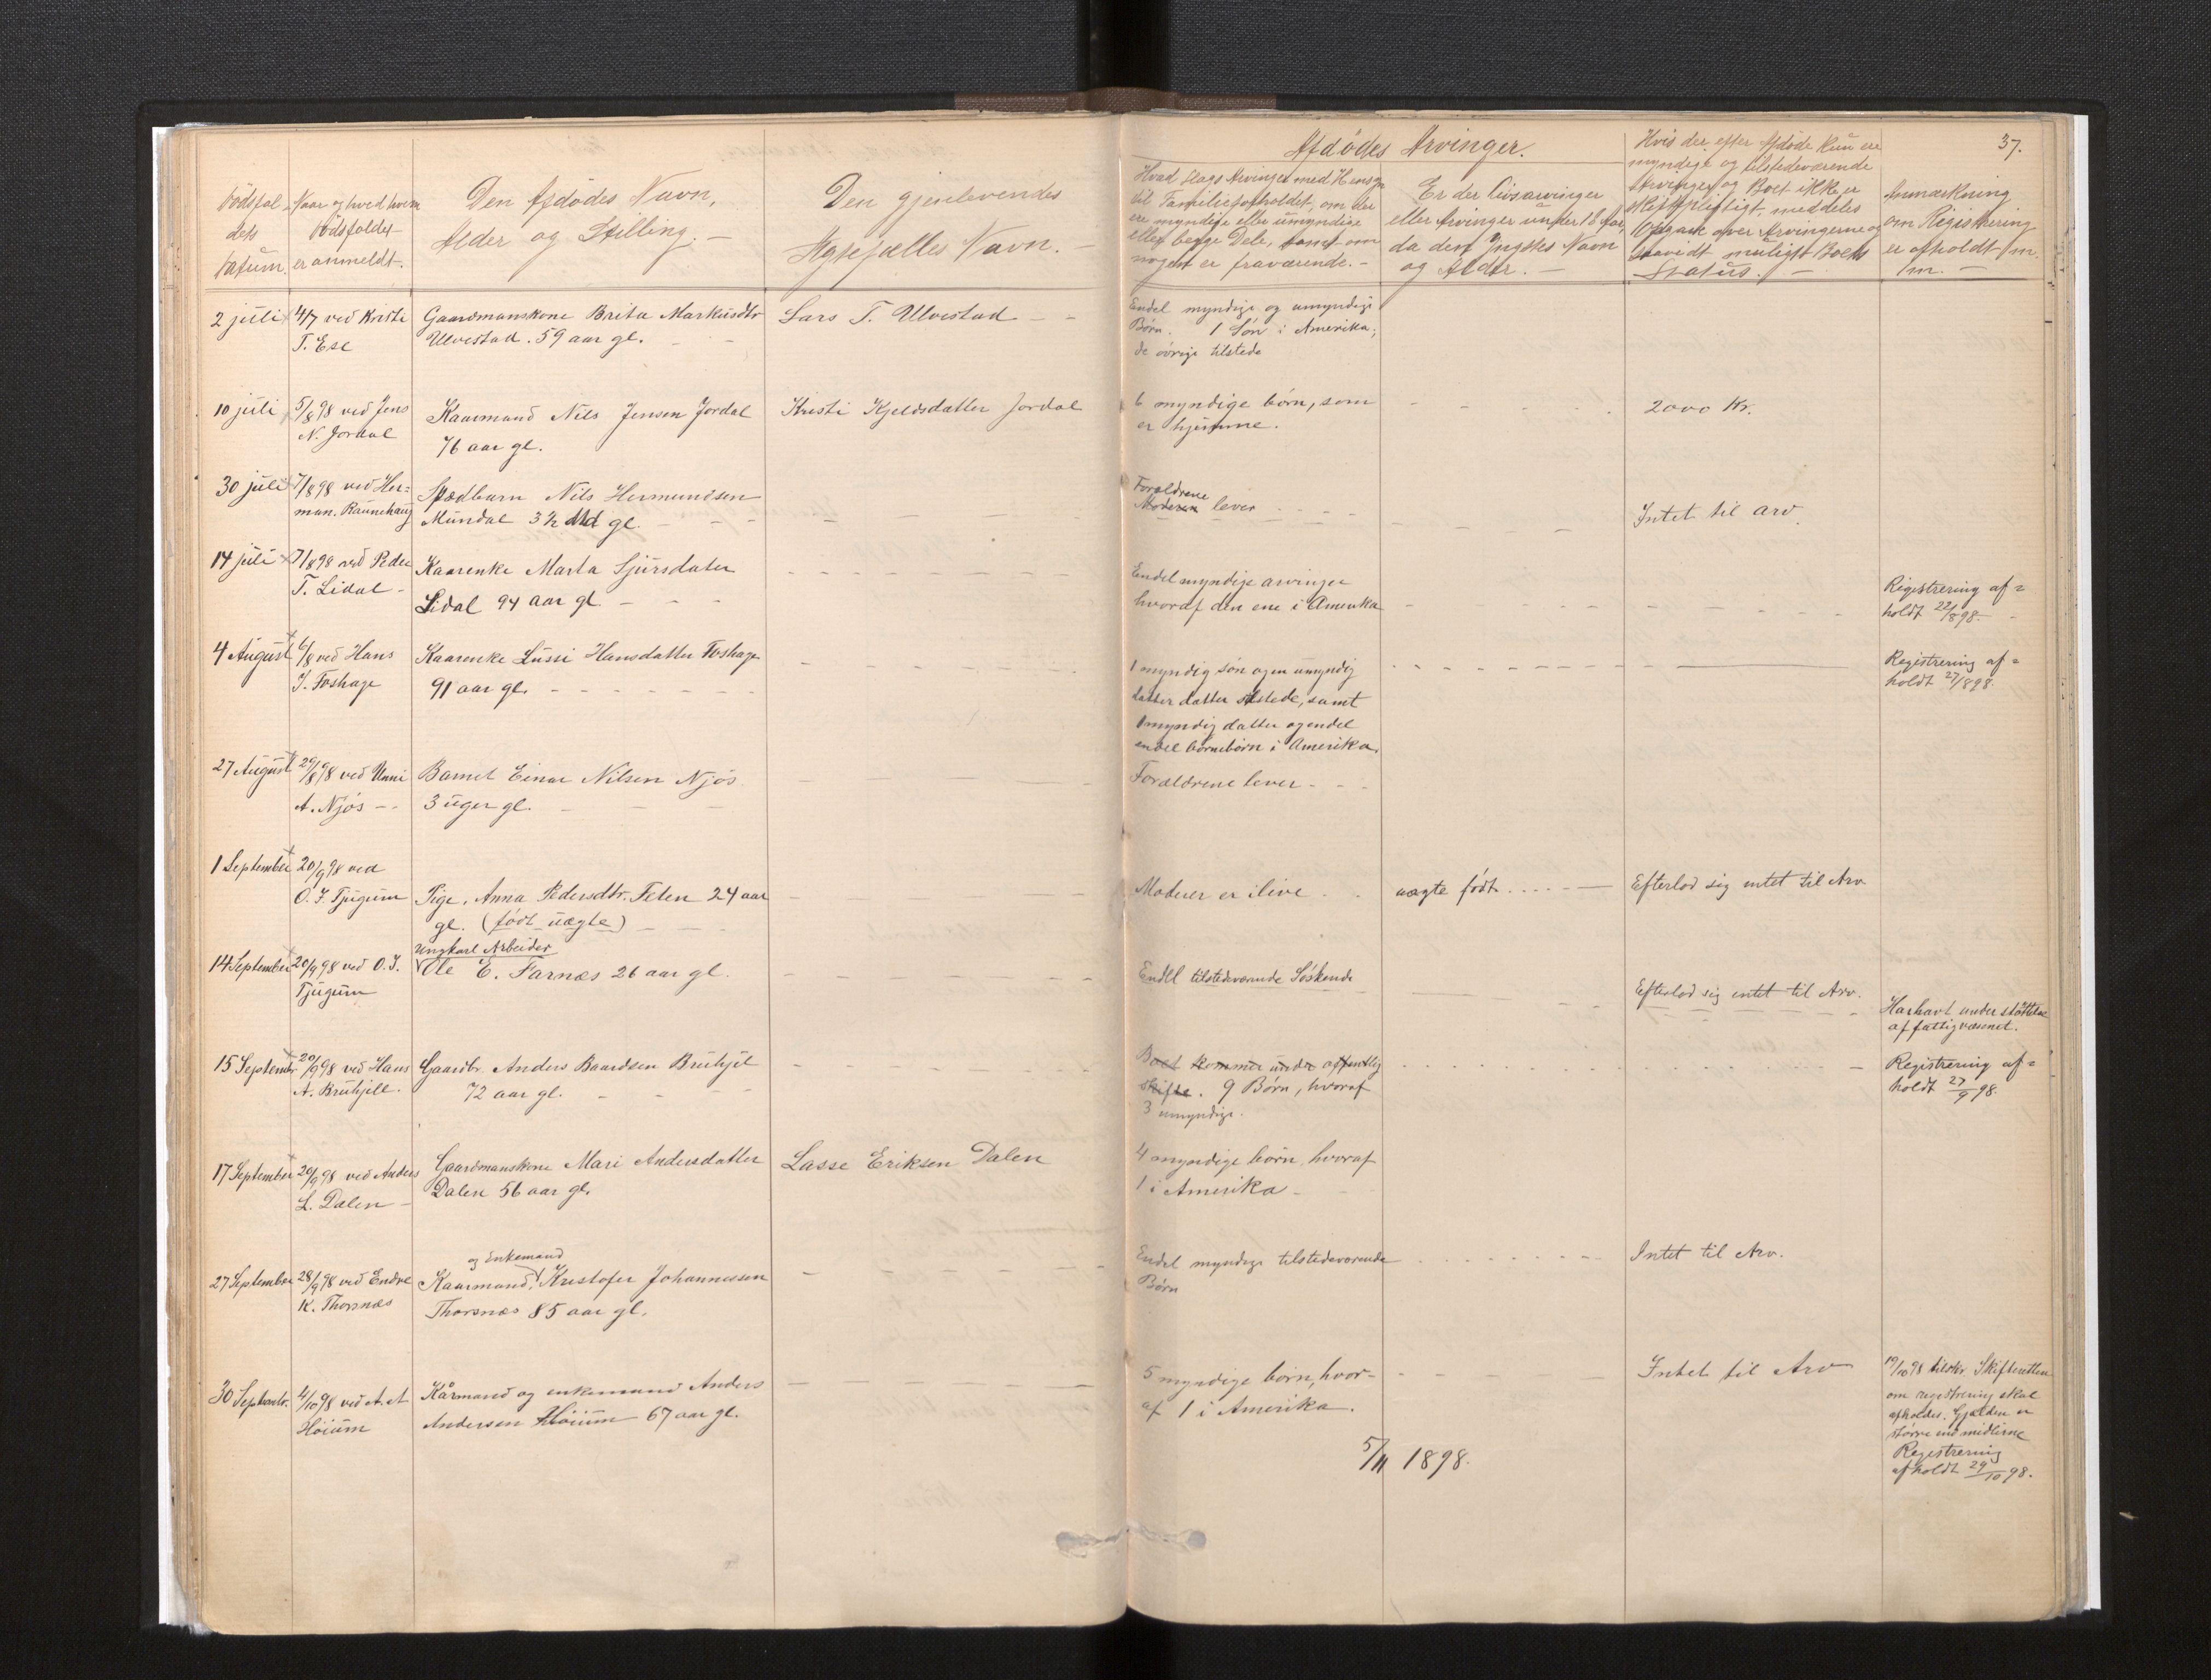 37.
Afdødes Arvinger.
Dødsfal-
dets
Datum.
Naar og hved hvem
Dødsfaldet
er anmeldt.
Den Afdødes Navn,
Alder og Stilling. -
Den gjenlevendes
Ægtefælles Navn. -
Hvad Slags Arvinger med Hensyn
til Familieforholdet, om der
ere myndige eller umyndige
eller begge Dele, samt om
nogen er fraværende. -
Er der Livsarvinger
eller Arvinger under 18 Aar,
da den Yngstes Navn
og Alder. -
Hvis der efter Afdøde kun ere
myndige og tilstedeværende
Arvinger og Boet ikke er
skiftepligtigt, meddeles
Opgave over Arvingerne og
saavidt muligt Boets
Status. -
Anmærkning
om Registrering
er afholdt m.
m. -
2 juli
4/7 ved Kristi
T. Ese
Gaardmanskone Brita Markusdtr
Ulvestad. 59 aar gl.
Lars T. Ulvestad
Endel myndige og umyndige
Børn. 1 Søn i Amerika;
de øvrige tilstede
10 juli
5/8 98 ved Jens
N. Jordal
Kaarmand Nils Jensen Jordal
76 aar gl.
Kristi Kjeldsdatter Jordal
6 myndige børn, som
er hjemme.
2000 Kr.
30 juli
7/8 98 ved Her=
man. Raunehaug
Spædbarn Nils Hermundsen
Mundal 3½ Md gl.
Forældrene
Moderen lever
Intet til arv
14 juli
7/8 98 ved Peder
T. Lidal
Kaarenke Marta Sjursdater
Lidal 94 aar gl
Endel myndige arvinger
hvoraf den ene i Amerika
Registrering af=
holdt 22/8 98.
4 August
6/8 ved Hans
J. Foshage
Kaarenke Lussi Hansdatter Foshage
91 aar gl.
1 myndig søn og en umyndig
datter datter tilstede, samt
1 myndig datter og endel
endel børnebørn i Amerika.
Registrering af=
holdt 27/8 98.
27 August
29/8 98 ved Unni
A. Njøs
Barnet Einar Nilsen Njøs
3 uger gl.
Forældrene lever
1 September
20/9 98 ved
O. J. Tjugum
Pige, Anna Pedersdtr. Feten 24 aar
gl. (født uægte)
Moderer er ilive
uægte født
Efterlod sig intet til Arv
14 September
20/9 98 ved O. J.
Tjugum
Ungkarl Arbeider
Ole E. Farnæs 26 aar gl.
Endel tilstedeværende Søskende
Efterlod sig intet til Arv.
Har havt understøttelse
af fattigvæsenet.
15 Septembr
20/9 98 ved Hans
A. Bruhjell.
Gaardbr. Anders Baardsen Bruhjel
72 aar gl.
Boet kommer under offentlig
skifte. 9 Børn, hvoraf
3 umyndige.
Registrering af=
holdt 27/9 98.
17 September
20/9 98 ved Anders
L. Dalen
Gaardmanskone Mari Andersdatter
Dalen 56 aar gl.
Lasse Eriksen Dalen
4 myndige børn, hvoraf
1 i Amerika
27 September
28/9 98 ved Endre
K. Thorsnæs
og Enkemand
Kaarmand, Kristofer Johannesen
Thorsnæs 85 aar gl.
Endel myndige tilstedeværende
Børn
Intet til Arv.
30 Septembr.
4/10 98 ved A. A
Høium
Kårmand og enkemand Anders
Andersen Høium 67 aar gl.
5 myndige børn, hvor-
af 1 i Amerika.
Intet til Arv
19/10 98 tilskr. Skifteretten
om registrering skal
afholdes. Gjælden er
større end midlerne
Registrering
afholdt 29/10 98.
5/11 1898.